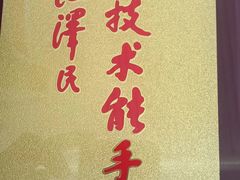 技术能手
泽民